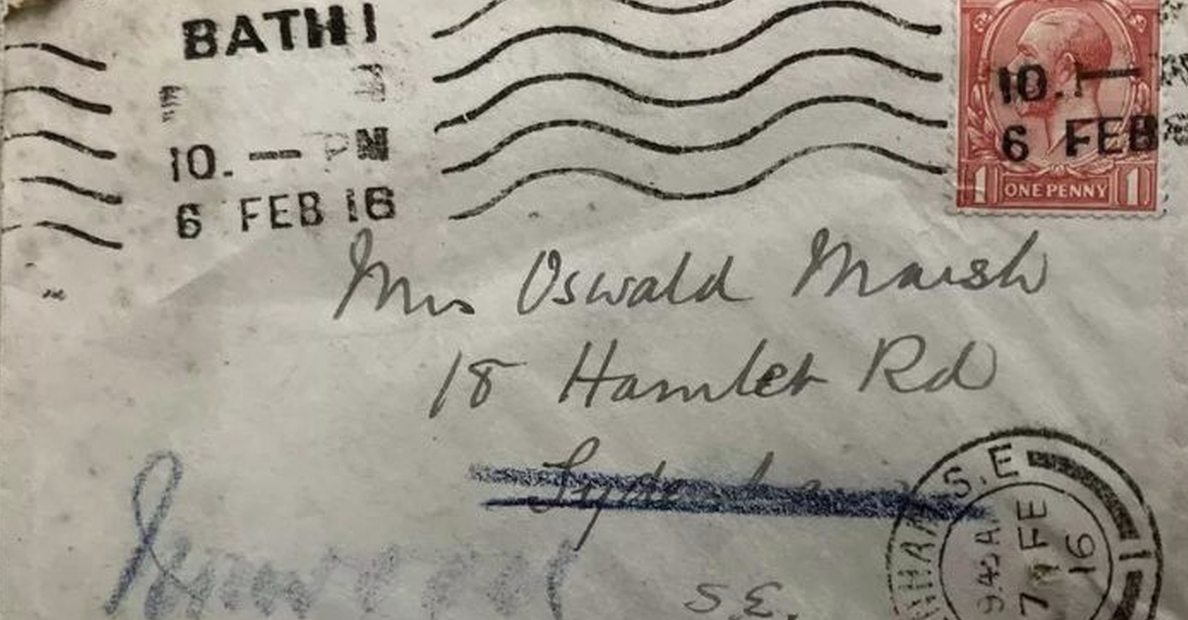 BATH 1
10. — PM
6 FEB 16
10. —
6 FEB
1 ONE PENNY 1
Mrs Oswald Marsh
18 Hamlet Rd
Sydenham
Norwood
S.E.
S.E
9.45 A
7 FE
16